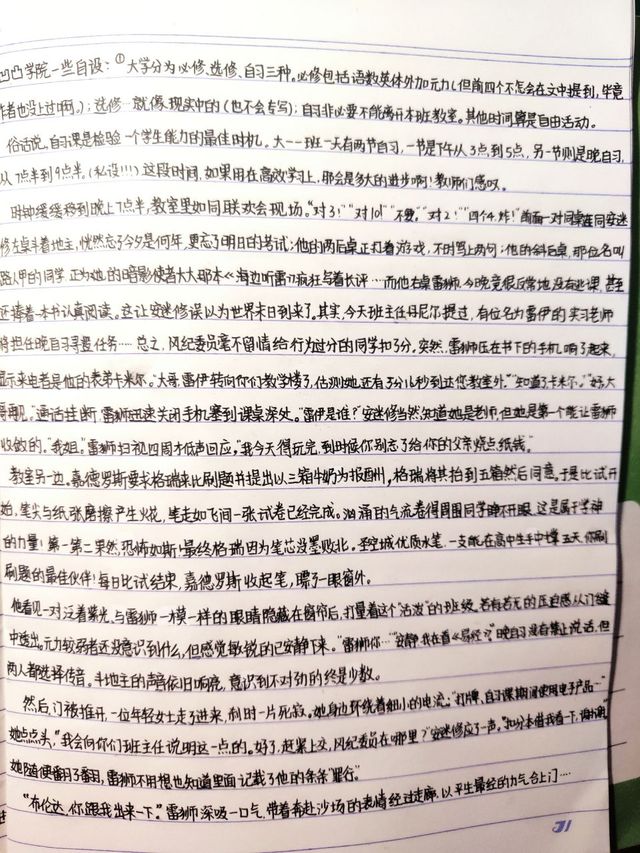 凹凸学院一些自设：①大学分为必修、选修、自习三种。必修包括语数英体外加元力（但前四个不怎会在文中提到，毕竟
作者也没上过啊。）；选修就像现实中的（也不会专写）；自习非必要不能离开本班教室。其他时间算是自由活动。
俗话说，自习课是检验一个学生能力的最佳时机。大一一班一天有两节自习，一节是下午从3点到5点，另一节则是晚自习，
从7点半到9点半。（私设!!!）这段时间，如果用在高效学习上，那会是多大的进步啊！教师们感叹。
时钟缓缓移到晚上7点半，教室里如同联欢会现场。"对3！""对10！""不要。""对2！""四个4，炸！"前面一对同桌在同安迷
修左桌斗着地主，恍然忘了今夕是何年，更忘了明日的考试；他的两后桌正打着游戏，不时骂上两句；他的斜后桌，那位名叫
路人甲的同学正为她的暗影使者大大那本《海边听雷》疯狂写着长评……而他右桌雷狮，今晚竟很反常地没有逃课，甚至
还捧着一本书认真阅读。这让安迷修误以为世界末日到来了。其实，今天班主任丹尼尔提过，有位名为雷伊的实习老师
将担任晚自习寻置任务……总之，风纪委员毫不留情给行为过分的同学扣了分。突然，雷狮压在书下的手机响了起来，
显示来电者是他的表弟卡米尔。"大哥，雷伊转向你们教学楼了，估测她还有3分1秒到达您教室外。""知道了卡米尔。""好，大
哥再见。"通话挂断，雷狮迅速关闭手机塞到课桌深处。"雷伊是谁？"安迷修当然知道她是老师，但她是第一个能让雷狮
收敛的。"我姐。"雷狮扫视四周才低声回应，"我今天得玩完，到时候你别忘了给你的父亲烧点纸钱。"
教室另一边。嘉德罗斯要求格瑞来比刷题并提出以三箱牛奶为报酬，格瑞将其抬到五箱然后同意。于是比试开
始，笔尖与纸张磨擦产生火花，笔走如飞间一张试卷已经完成。汹涌的气流卷得周围同学睁不开眼，这是属于学神
的力量！第一第二果然恐怖如斯！最终格瑞因为笔芯没墨败北。圣空城优质水笔，一支能在高中生手中撑五天，你刷
刷题的最佳伙伴！每日比试结束，嘉德罗斯收起笔，瞟了一眼窗外。
他看见一对泛着紫光，与雷狮一模一样的眼睛隐藏在窗帘后，打量着这个"活泼"的班级，若有若无的压迫感从门缝
中透出。元力较弱者还没意识到什么，但感觉敏锐的已安静下来。"雷狮你…""安静，我在看《易经》。"晚自习没有禁止说话，但
两人都选择传音。斗地主的声音依旧响亮，意识到不对劲的终是少数。
然后门被推开，一位年轻女士走了进来，刹时一片死寂。她身边环绕着细小的电流："打牌，自习课期间使用电子产品…"
她点点头，"我会向你们班主任说明这一点的。好了，赶紧上交，风纪委员在哪里？"安迷修应了一声。"扣分本借我看一下，谢谢。"
她随便翻了翻，雷狮不用想也知道里面记载了他的条条"罪行"。
"布伦达，你跟我出来一下。"雷狮深吸一口气，带着奔赴沙场的表情经过走廊，以平生最轻的力气合上门……
31